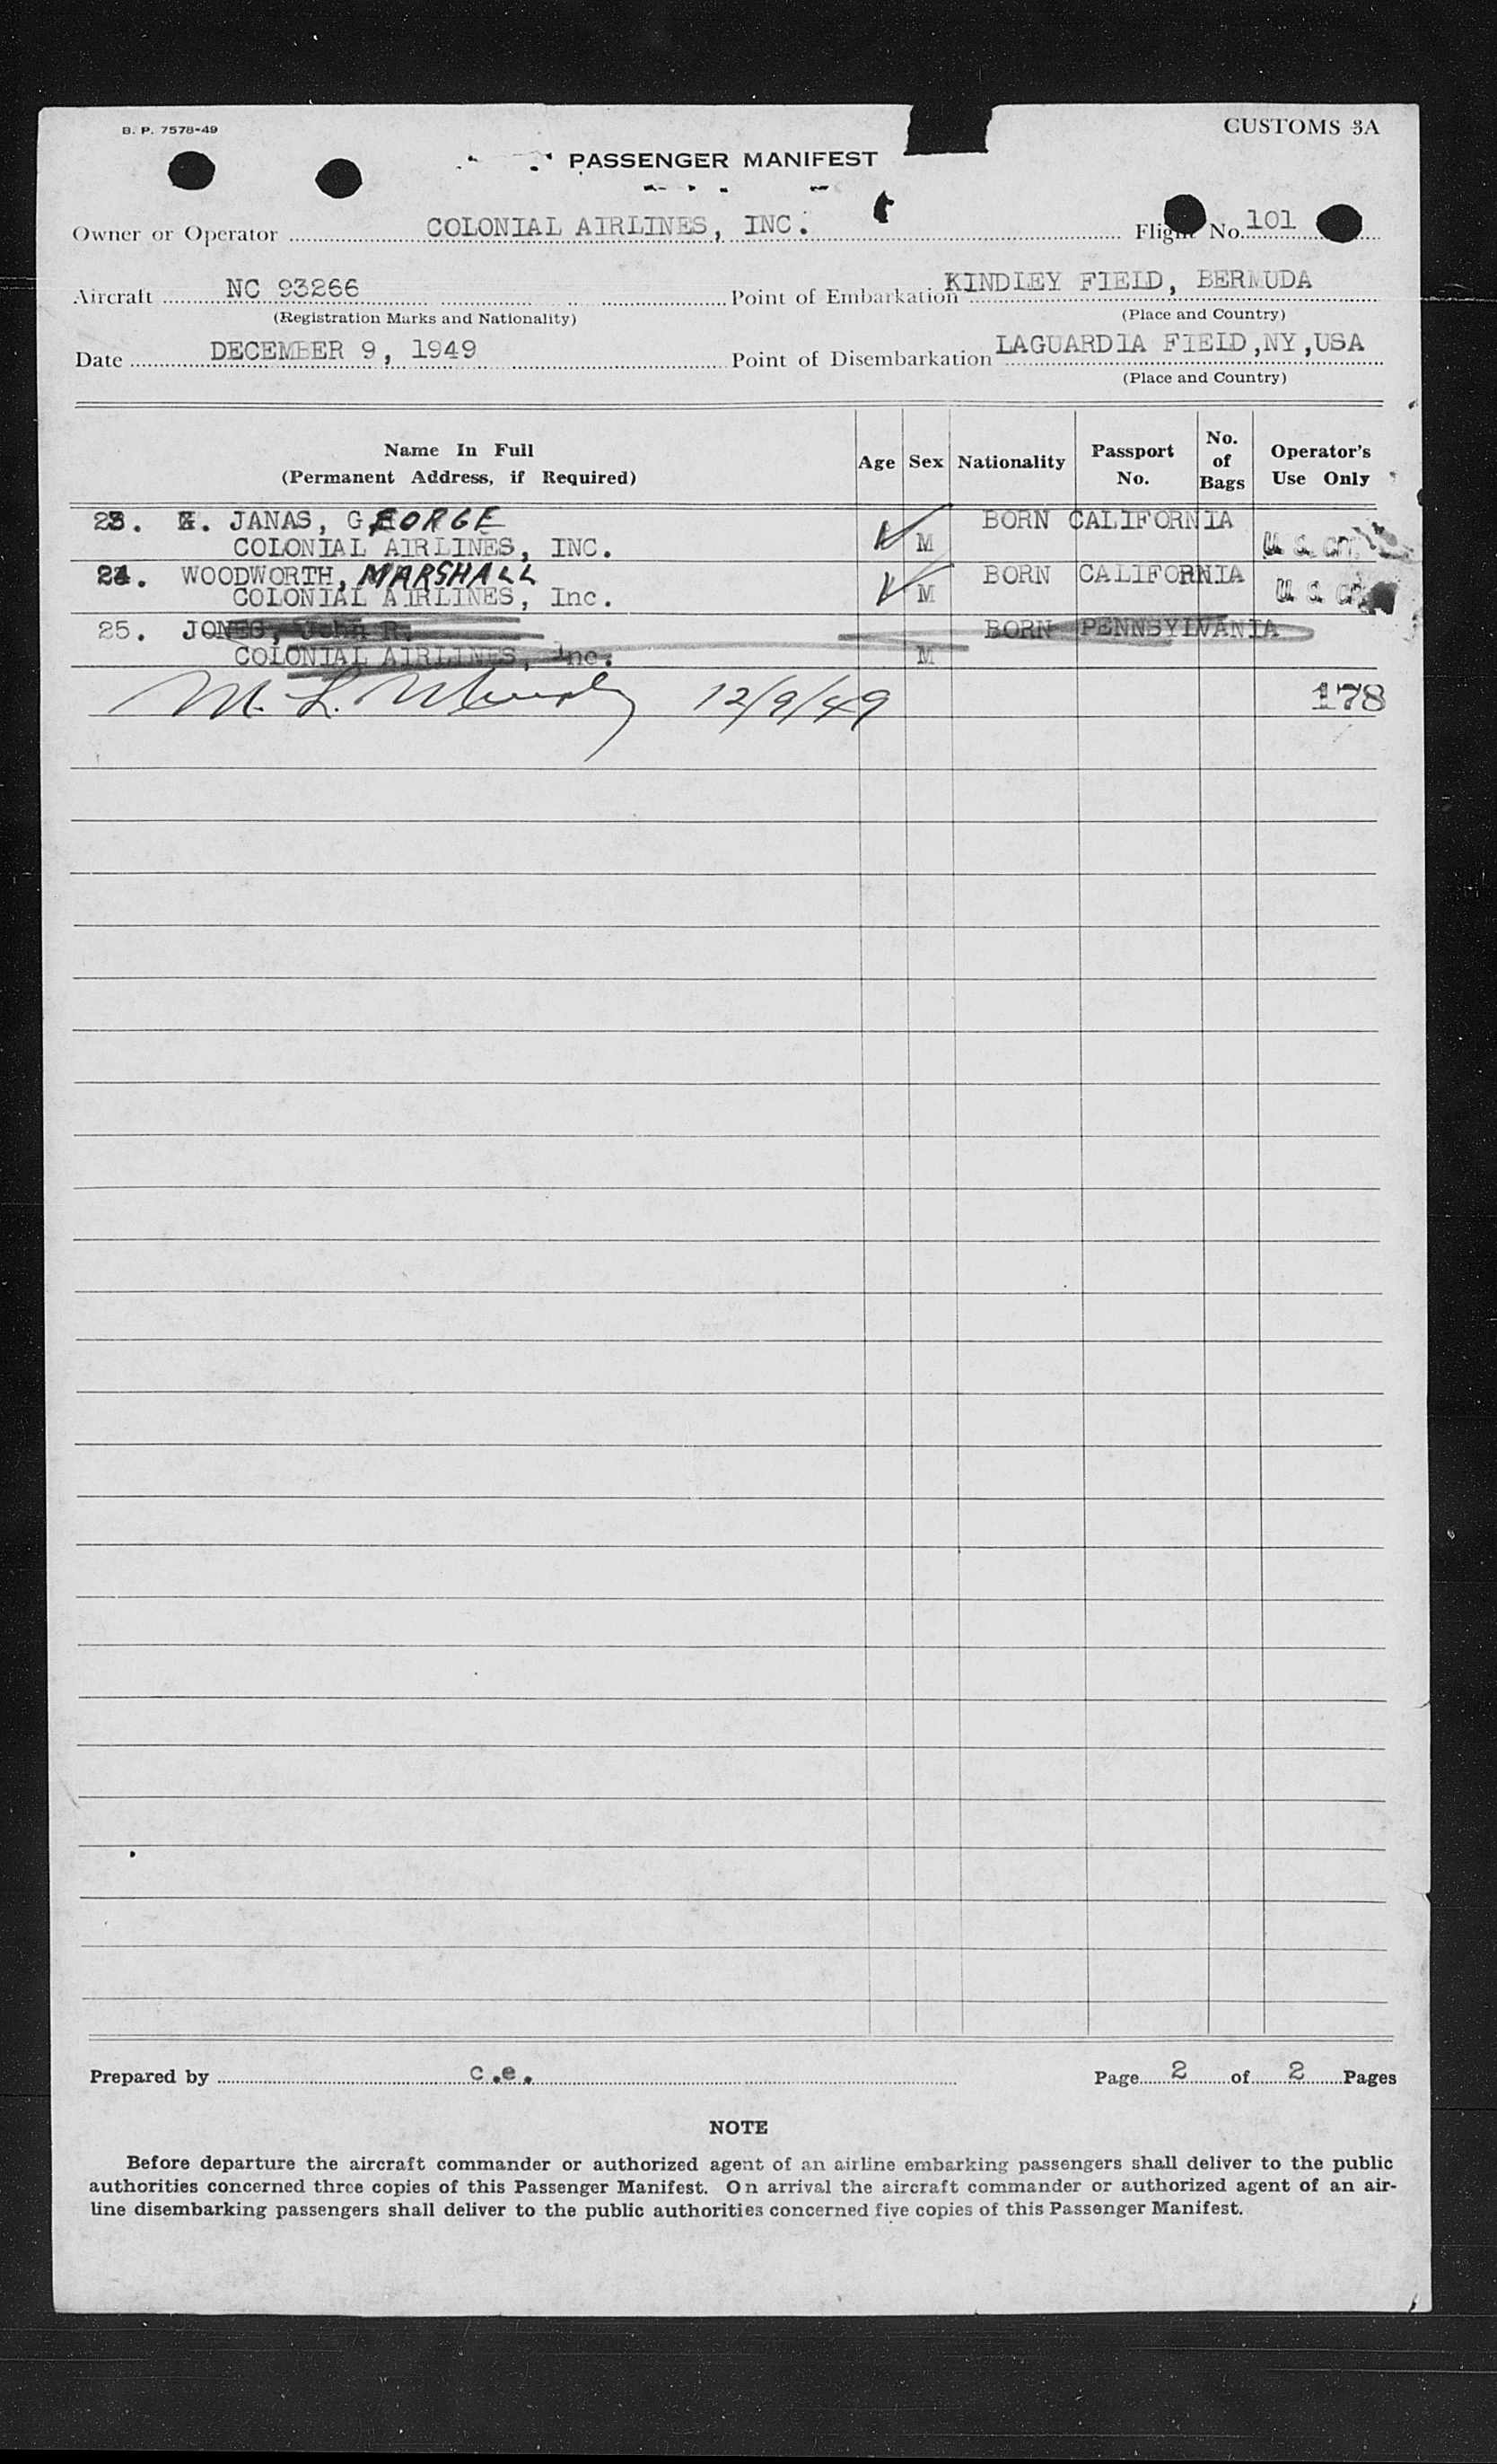 B. P. 7578-49
CUSTOMS 3A
PASSENGER MANIFEST
Owner or Operator COLONIAL AIRLINES, INC. Flight No. 101
Aircraft NC 93266 Point of Embarkation KINDLEY FIELD, BERMUDA
(Registration Marks and Nationality) (Place and Country)
Date DECEMBER 9, 1949 Point of Disembarkation LAGUARDIA FIELD,NY,USA
(Place and Country)
Name In Full
(Permanent Address, if Required)
Age Sex Nationality Passport No. No. of Bags Operator's Use Only
23. JANAS, GEORGE BORN CALIFORNIA
COLONIAL AIRLINES, INC. M U. S. cit.
24. WOODWORTH, MARSHALL BORN CALIFORNIA
COLONIAL AIRLINES, Inc. M U. S. cit.
25. JONES, John R. BORN PENNSYLVANIA
COLONIAL AIRLINES, Inc. M
M. L. 12/9/49 178
Prepared by c.e. Page 2 of 2 Pages
NOTE
Before departure the aircraft commander or authorized agent of an airline embarking passengers shall deliver to the public
authorities concerned three copies of this Passenger Manifest. On arrival the aircraft commander or authorized agent of an air-
line disembarking passengers shall deliver to the public authorities concerned five copies of this Passenger Manifest.